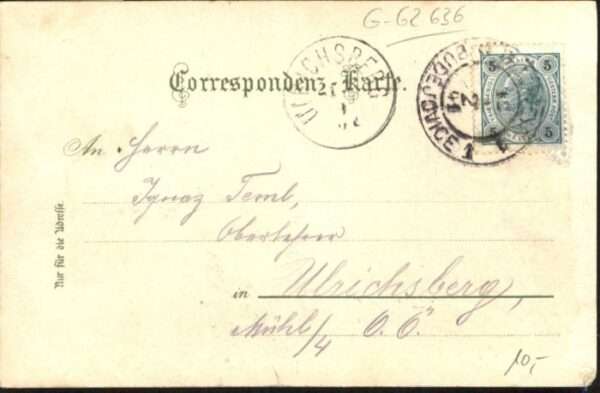 G-62 636
Correspondenz-Karte.
ULRICHSBERG
BUDĚJOVICE 1
5 5
5 5
An Herrn
Ignaz Teml,
Oberlehrer
in Ulrichsberg,
Mühl/4 O.Ö.
Nur für die Adresse.
10,-